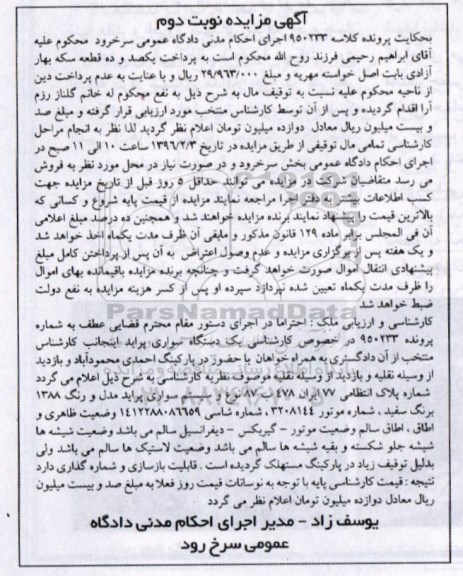 آگهی مزایده نوبت دوم
بحکایت پرونده کلاسه ۹۵۰۲۳۳ اجرای احکام مدنی دادگاه عمومی سرخرود محکوم علیه
آقای ابراهیم رحیمی فرزند روح الله محکوم است به پرداخت یکصد و ده قطعه سکه بهار
آزادی بابت اصل خواسته مهریه و مبلغ ۲۹/۹۶۳/۰۰۰ ریال و با عنایت به عدم پرداخت دین
از ناحیه محکوم علیه نسبت به توقیف مال به شرح ذیل به نفع محکوم له خانم گلناز رزم
آرا اقدام گردیده و پس از آن توسط کارشناس منتخب مورد ارزیابی قرار گرفته و مبلغ صد
و بیست میلیون ریال معادل دوازده میلیون تومان اعلام نظر گردید لذا نظر به انجام مراحل
کارشناسی تمامی مال توقیفی از طریق مزایده در تاریخ ۱۳۹۶/۲/۳ ساعت ۱۰ الی ۱۱ صبح در
اجرای احکام دادگاه عمومی بخش سرخرود و در صورت نیاز در محل مورد نظر به فروش
می رسد متقاضیان شرکت در مزایده می توانند حداقل ۵ روز قبل از تاریخ مزایده جهت
کسب اطلاعات بیشتر به دفتر اجرا مراجعه نمایند مزایده از قیمت پایه شروع و کسانی که
بالاترین قیمت را پیشنهاد نمایند برنده مزایده خواهند شد و همچنین ده درصد مبلغ اعلامی
آن فی المجلس برابر ماده ۱۲۹ قانون مذکور و مابقی آن ظرف مدت یکماه اخذ خواهد شد
و یک هفته پس از برگزاری مزایده و عدم وصول اعتراض به آن پس از پرداختن کامل مبلغ
پیشنهادی انتقال اموال صورت خواهد گرفت و چنانچه برنده مزایده باقیمانده بهای اموال
را ظرف مدت یکماه تعیین شده نپردازد سپرده او پس از کسر هزینه مزایده به نفع دولت
ضبط خواهد شد
کارشناسی و ارزیابی ملک : احتراما در اجرای دستور مقام محترم قضایی عطف به شماره
پرونده ۹۵۰۲۳۳ در خصوص کارشناسی یک دستگاه سواری پراید اینجانب کارشناس
منتخب از آن دادگستری به همراه خواهان با حضور در پارکینگ احمدی محمودآباد و بازدید
از وسیله نقلیه و بازدید از وسیله نقلیه موصوف نظریه کارشناسی به شرح ذیل اعلام می گردد
شماره پلاک انتظامی ۷۷ ایران ۴۷۸ ب ۸۷ نوع و سیستم سواری پراید مدل و رنگ ۱۳۸۸
برنگ سفید ، شماره موتور ۳۲۰۸۱۴۴، شماره شاسی ۱۴۱۲۲۸۸۰۸۶۶۵۹ وضعیت ظاهری و
اطاق ، اطاق سالم وضعیت موتور - گیربکس - دیفرانسیل سالم می باشد وضعیت شیشه ها
شیشه جلو شکسته و بقیه شیشه ها سالم می باشد وضعیت لاستیک ها سالم می باشد ولی
بدلیل توقیف زیاد در پارکینگ مستهلک گردیده است . قابلیت بازسازی و شماره گذاری دارد
نتیجه : قیمت کارشناسی پایه با توجه به نوسانات قیمت روز فعلا به مبلغ صد و بیست میلیون
ریال معادل دوازده میلیون تومان اعلام نظر می گردد
یوسف زاد - مدیر اجرای احکام مدنی دادگاه
عمومی سرخ رود